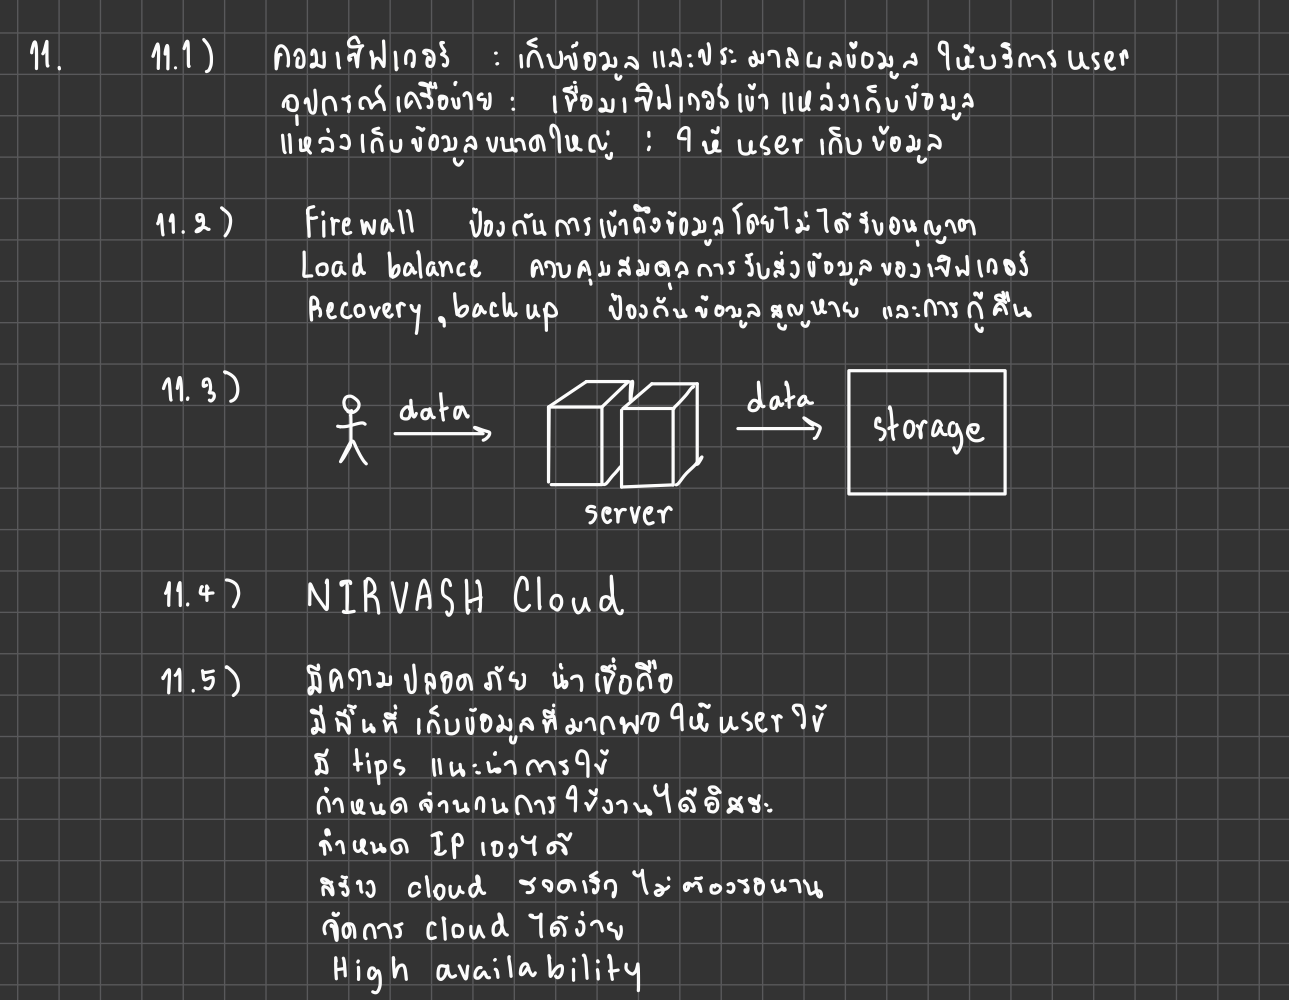 11. 11.1) คอมเซิฟเวอร์ : เก็บข้อมูล และประมาลผลข้อมูล ให้บริการ user
อุปกรณ์เครือข่าย : เชื่อมเซิฟเวอร์เข้าแหล่งเก็บข้อมูล
แหล่งเก็บข้อมูลขนาดใหญ่ : ให้ user เก็บข้อมูล
11.2) Firewall ป้องกันการเข้าถึงข้อมูลโดยไม่ได้รับอนุญาต
Load balance ควบคุมสมดุลการรับส่งข้อมูลของเซิฟเวอร์
Recovery, backup ป้องกันข้อมูลสูญหาย และการกู้คืน
11.3) data data
storage
server
11.4) NIRVASH Cloud
11.5) มีความปลอดภัย น่าเชื่อถือ
มีพื้นที่เก็บข้อมูลที่มากพอให้ user ใช้
มี tips แนะนำการใช้
กำหนดจำนวนการใช้งานได้อิสระ
กำหนด IP เองได้
สร้าง cloud รวดเร็ว ไม่ต้องรอนาน
จัดการ cloud ได้ง่าย
High availability